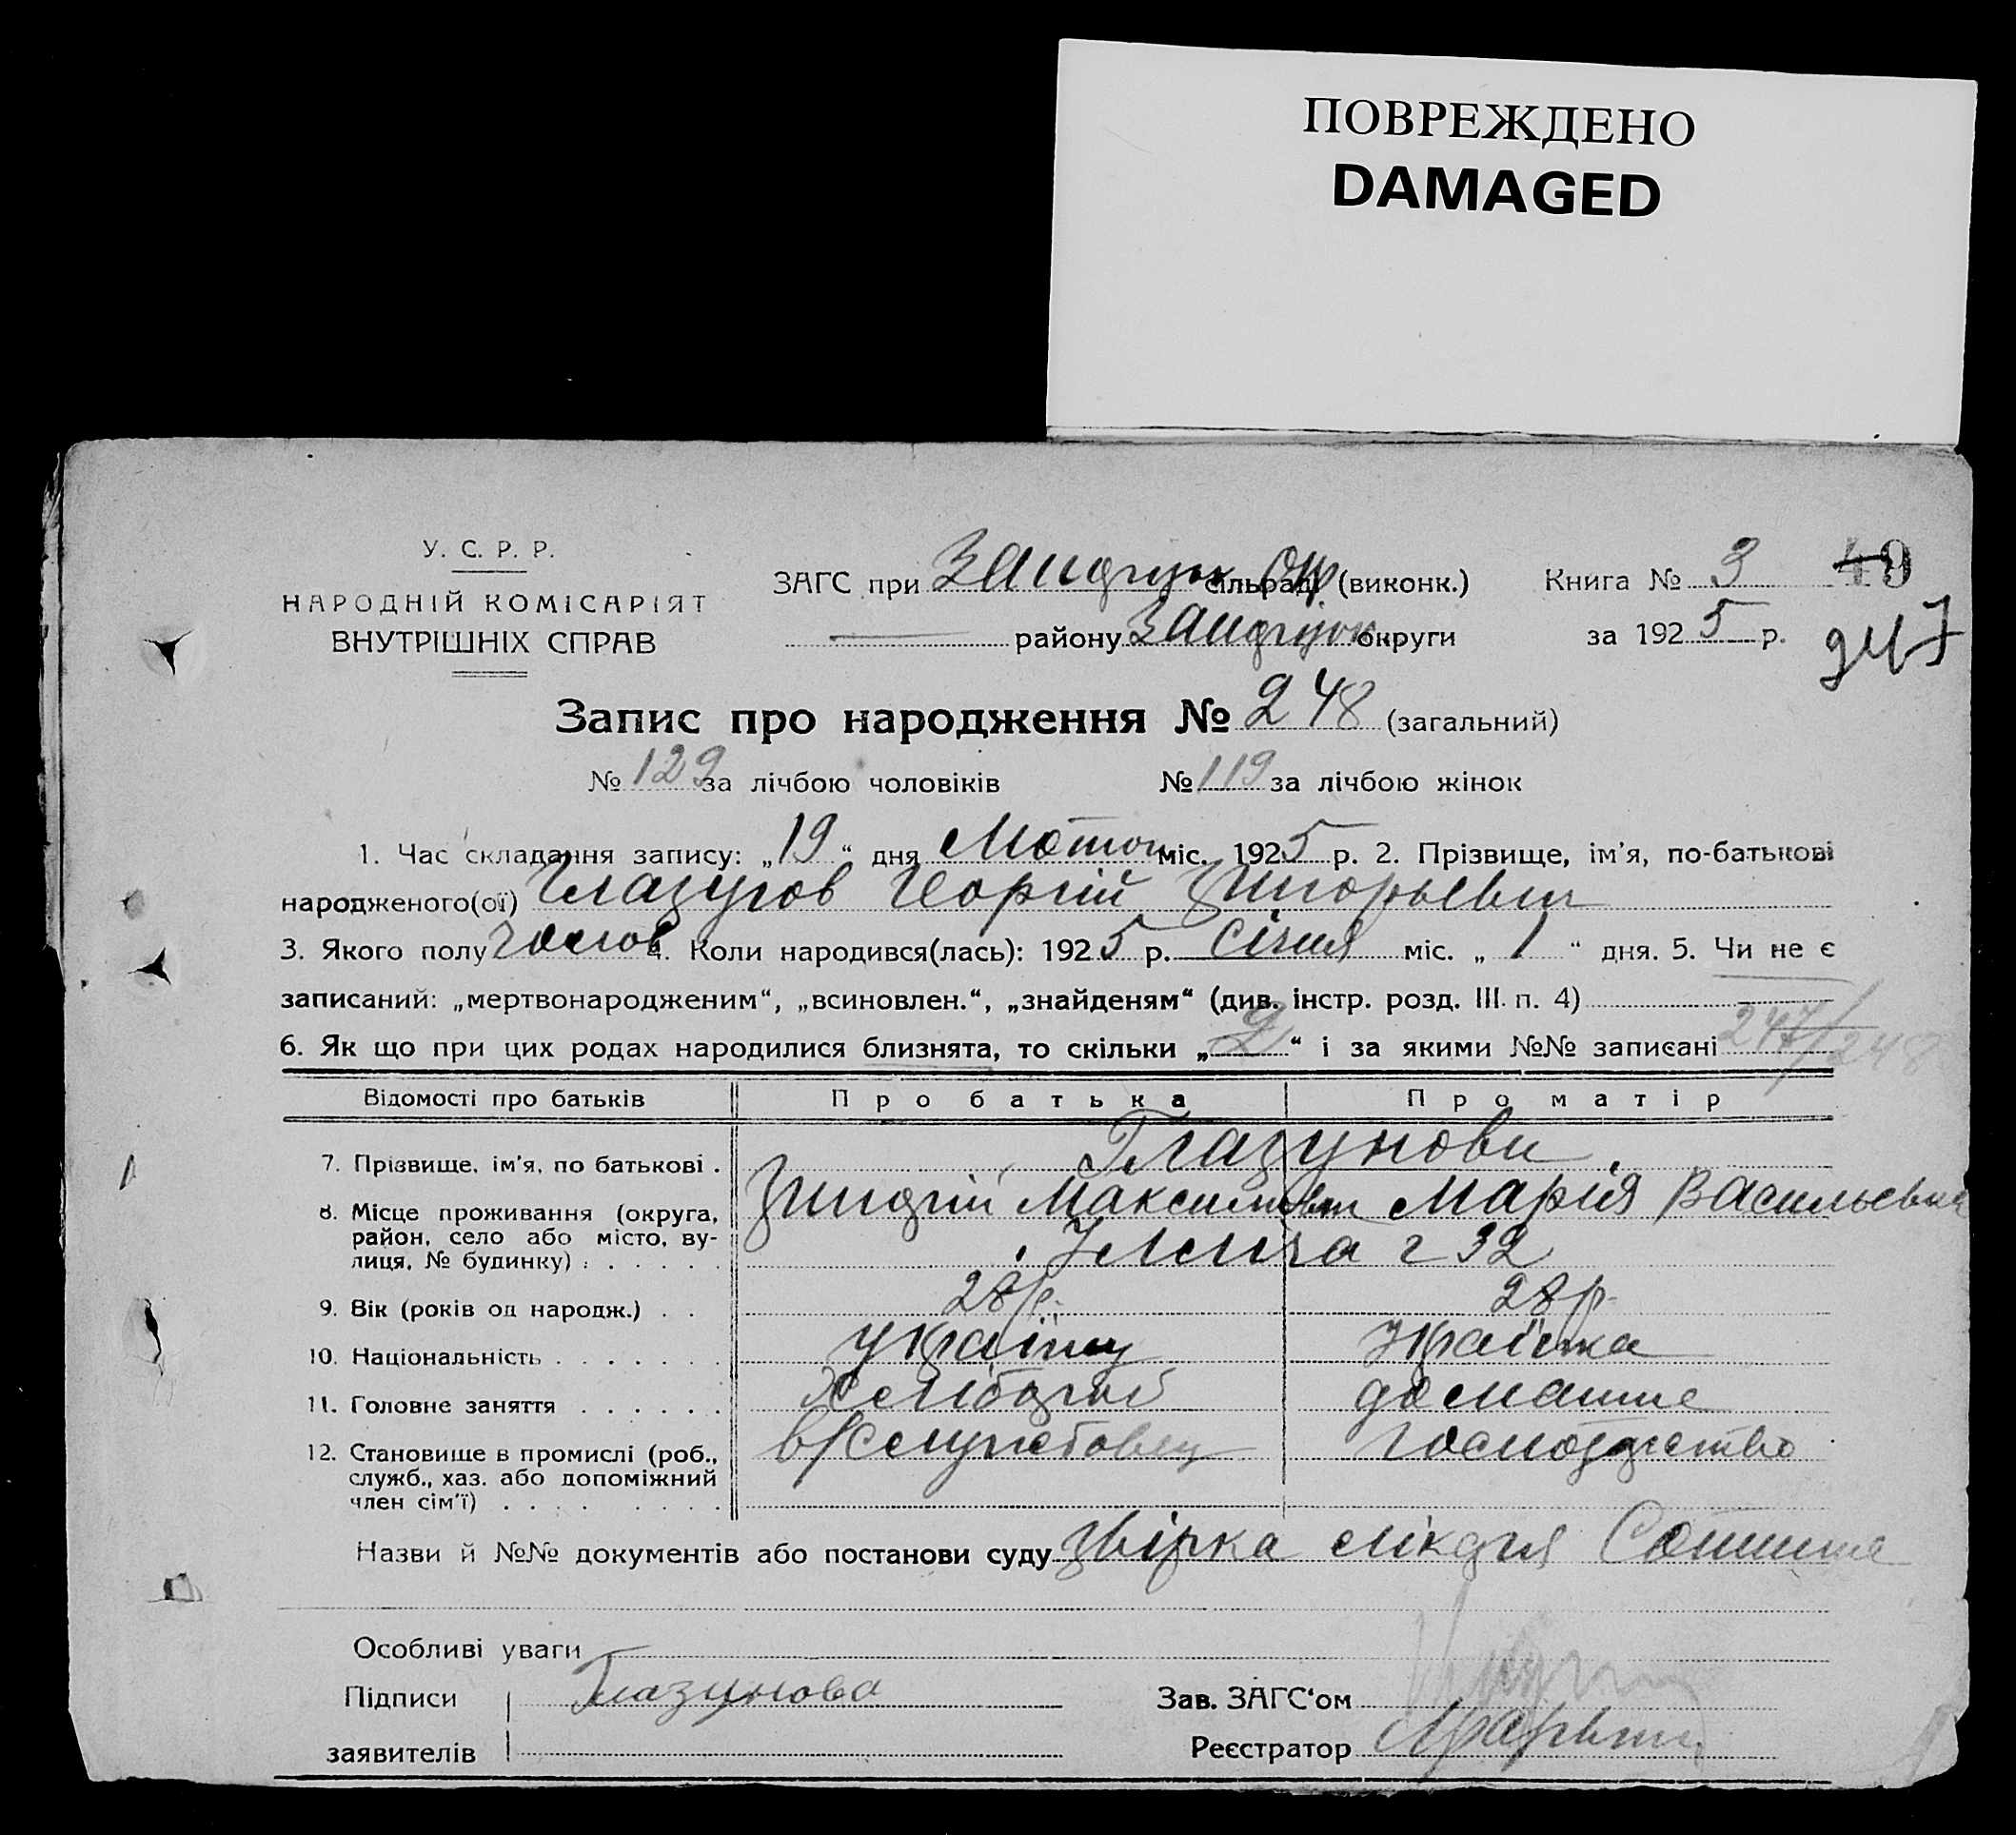 ПОВРЕЖДЕНО
DAMAGED
У. С. Р. Р.
НАРОДНІЙ КОМІСАРІЯТ
ВНУТРІШНІХ СПРАВ
ЗАГС при сільраді (виконк.) Книга № 3 49
району округи за 1925 р. 247
Запис про народження № 248 (загальний)
№ 129 за лічбою чоловіків № 119 за лічбою жінок
1. Час складання запису: „19“ дня міс. 1925 р. 2. Прізвище, ім'я, по-батькові
народженого(ої) Глазунов Георгій
3. Якого полу 4. Коли народився(лась): 1925 р. Січня міс. „1“ дня. 5. Чи не є
записаний: „мертвонародженим“, „всиновлен.“, „знайденям“ (див. інстр. розд. III п. 4)
6. Як що при цих родах народилися близнята, то скільки „2“ і за якими №№ записані 247/248
Відомості про батьків Про батька Про матір
7. Прізвище, ім'я, по батькові . Глазунови
Максимович Марія Васильевна
8. Місце проживання (округа,
район, село або місто, ву-
лиця, № будинку) : . . . . . 32
9. Вік (років од народж.) . . 28 р. 28 р.
10. Національність . . . . . . . українец українка
11. Головне заняття . . . . . . домашне
12. Становище в промислі (роб., в/службовец господарство
служб., хаз. або допоміжний
член сім'ї) . . . . . . . . .
Назви й №№ документів або постанови суду
Особливі уваги
Підписи Глазунова Зав. ЗАГС'ом
заявителів Реєстратор